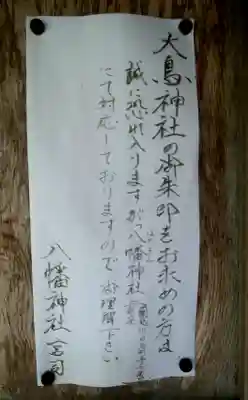 大鳥神社の御朱印をお求めの方は
誠に恐れ入りますが八幡神社
にて対応しておりますので御理解下さい
八幡神社 宮司